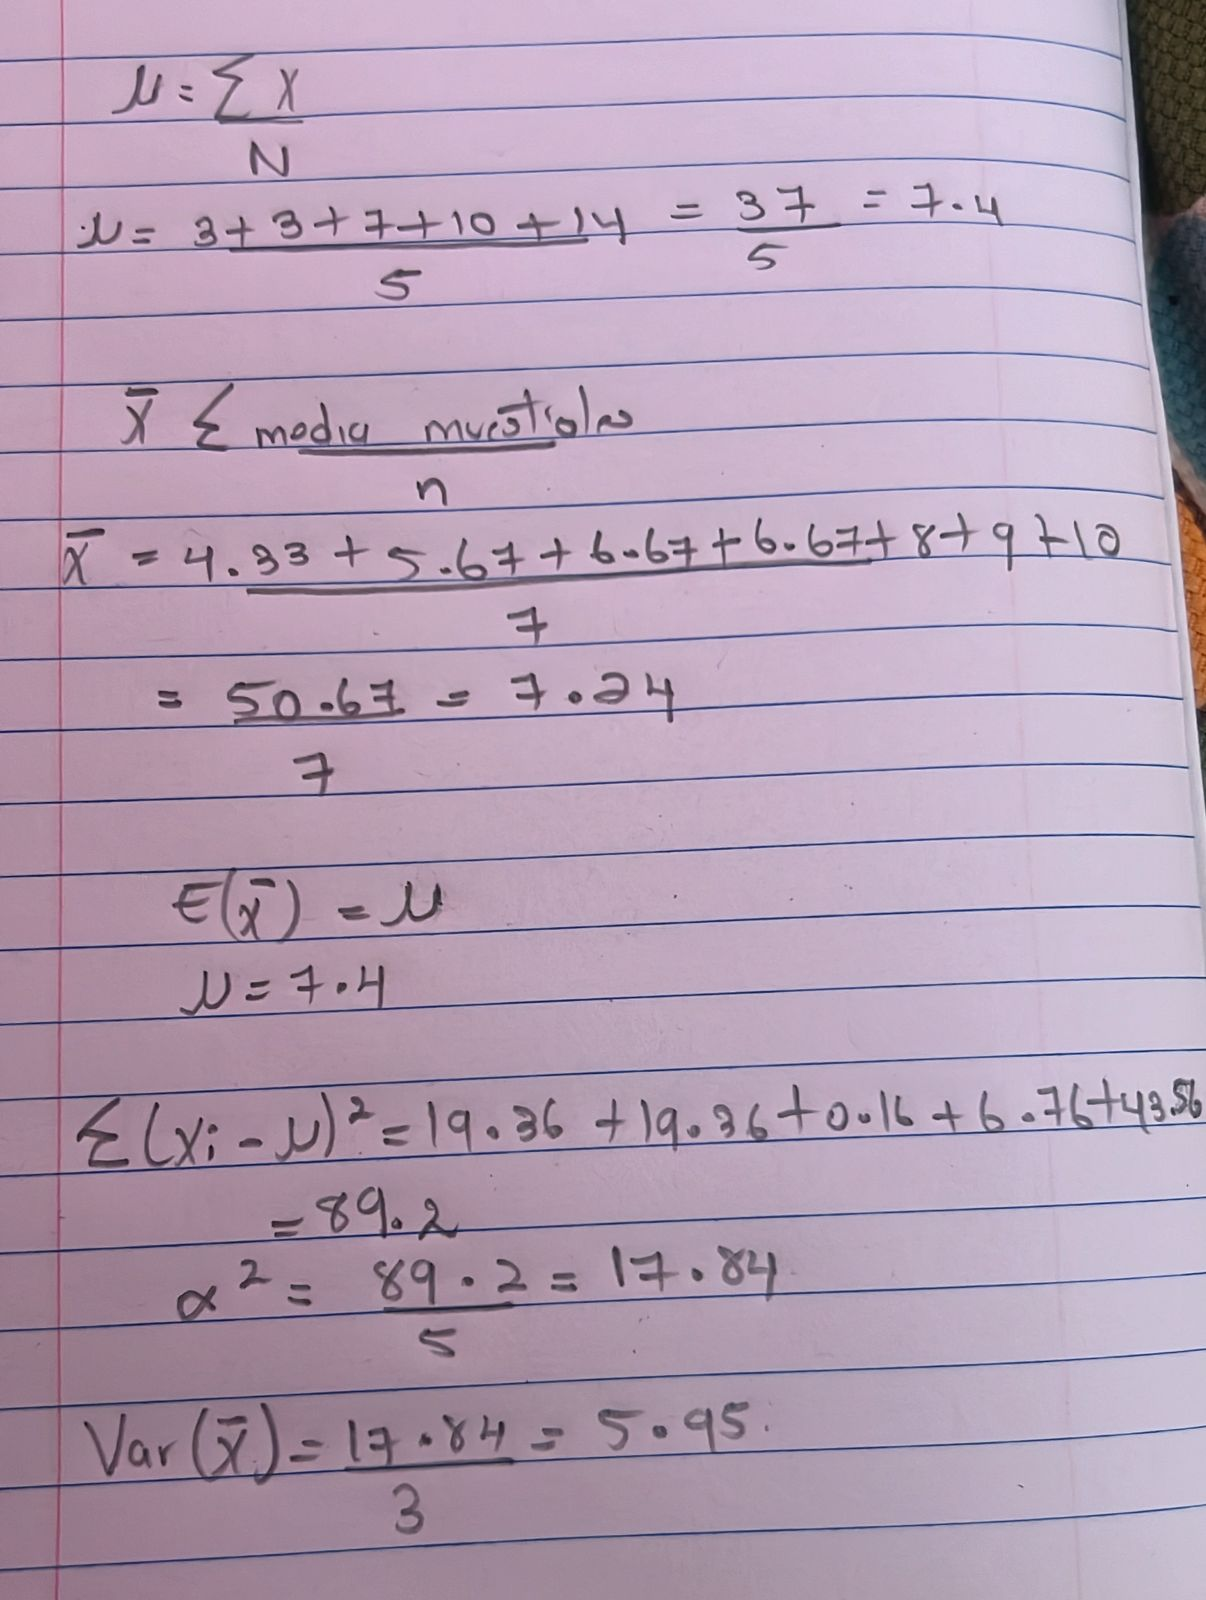 μ = Σ X
N
μ = 3+3+7+10+14 = 37 = 7.4
5 5
X̄ Σ media muestrales
n
x̄ = 4.33 + 5.67 + 6.67 + 6.67 + 8 + 9 + 10
7
= 50.67 = 7.24
7
E(x̄) = μ
μ = 7.4
Σ(xi - μ)² = 19.36 + 19.36 + 0.16 + 6.76 + 43.56
= 89.2
α² = 89.2 = 17.84
5
Var(x̄) = 17.84 = 5.95.
3